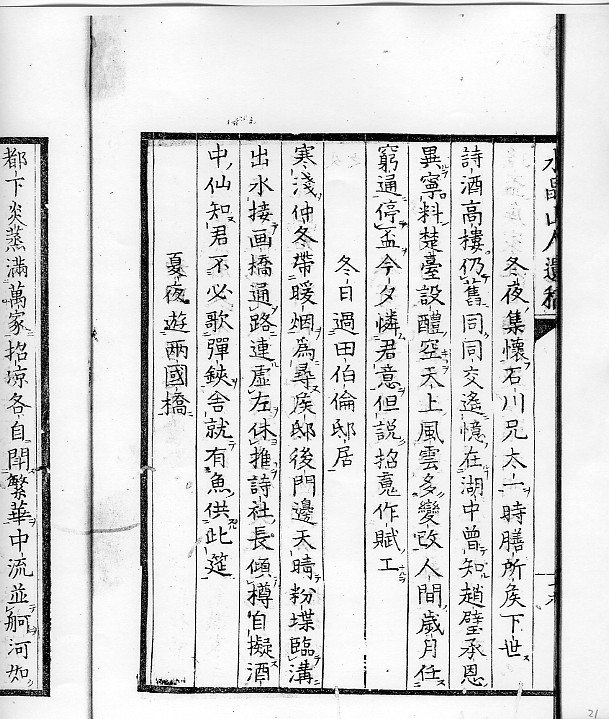 水晶山人遺稿
冬夜集懷石川兄太一時膳所矦下世
詩酒高樓仍舊同同交遙憶在湖中曾知趙璧承恩
異寧料楚臺設醴空天上風雲多變改人間歲月任
窮通停盃今夕憐君意但說招䰟作賦工
冬日過田伯倫邸居
寒淺仲冬帶暖烟爲尋矦邸後門邊天晴粉堞臨溝
出水接画橋通路連虛左休推詩社長傾樽自擬酒
中仙知君不必歌彈鋏舍就有魚供此筵
夏夜遊兩國橋
都下炎蒸滿萬家招凉各自鬧繁華中流並舸河如
21